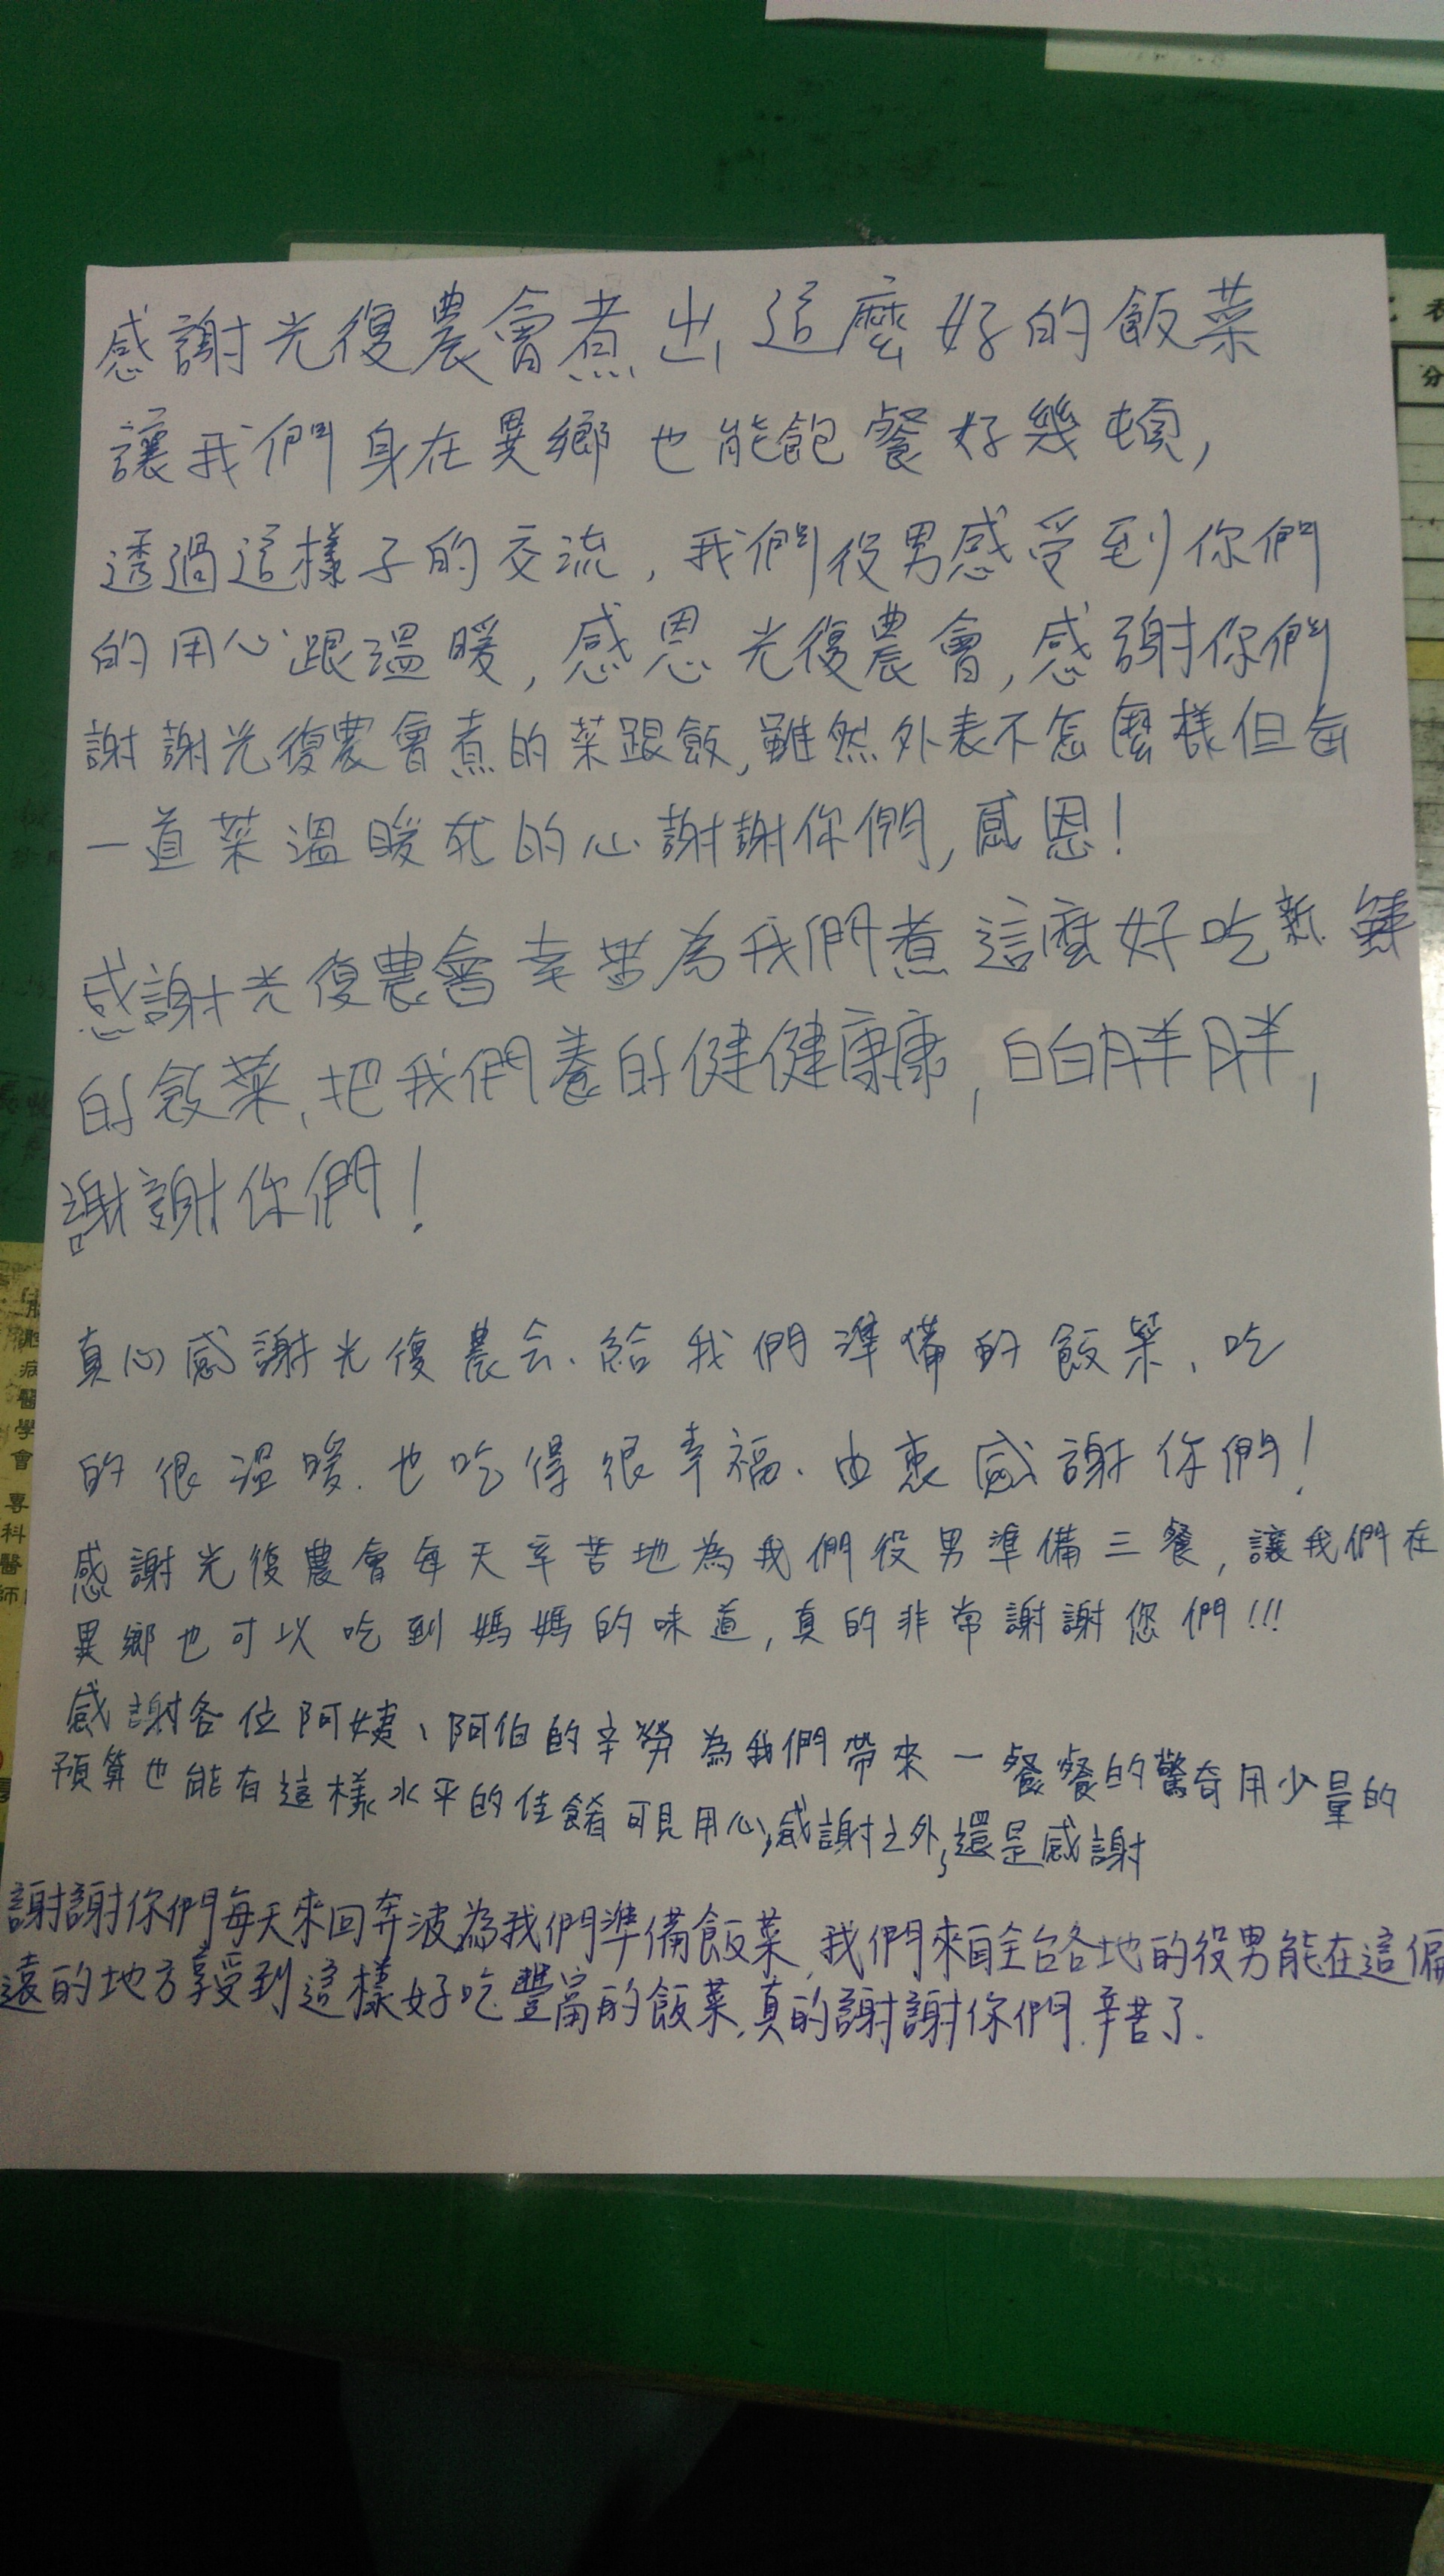 感謝光復農會煮出這麼好的飯菜
讓我們身在異鄉也能飽餐好幾頓,
透過這樣子的交流,我們役男感受到你們
的用心跟溫暖,感恩光復農會,感謝你們
謝謝光復農會煮的菜跟飯,雖然外表不怎麼樣但每
一道菜溫暖我的心謝謝你們,感恩!
感謝光復農會辛苦為我們煮這麼好吃新鮮
的飯菜,把我們養的健健康康,白白胖胖,
謝謝你們!
真心感謝光復農会、給我們準備的飯菜、吃
的很溫暖、也吃得很幸福、由衷感謝你們!
感謝光復農會每天辛苦地為我們役男準備三餐,讓我們在
異鄉也可以吃到媽媽的味道,真的非常謝謝您們!!!
感謝各位阿姨、阿伯的辛勞為我們帶來一餐餐的驚奇用少量的
預算也能有這樣水平的佳餚可見用心,感謝之外,還是感謝
謝謝你們每天來回奔波為我們準備飯菜,我們來自全台各地的役男能在這偏
遠的地方享受到這樣好吃豐富的飯菜,真的謝謝你們.辛苦了.
分
病
醫
學
會
專
科
醫
師